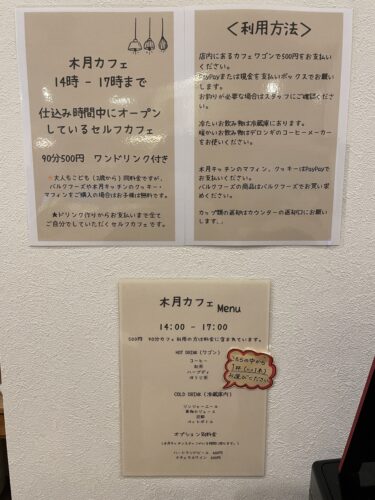 木月カフェ
14時 - 17時まで
仕込み時間中にオープン
しているセルフカフェ
90分500円 ワンドリンク付き
大人もこども(3歳から)同料金ですが、
バルクフーズや木月キッチンのクッキー・
マフィンをご購入の場合はお子様は無料です。
★ドリンク作りからお支払いまで全て
ご自分でしていただくセルフカフェです。
<利用方法>
店内にあるカフェワゴンで500円をお支払い
ください。
PayPayまたは現金を支払いボックスでお願い
します。
お釣りが必要な場合はスタッフにご確認くだ
さい。
冷たいお飲み物は冷蔵庫にあります。
暖かいお飲み物はデロンギのコーヒーメーカー
をお使いください。
木月キッチンのマフィン、クッキーはPayPayで
お支払いください。
バルクフーズの商品はバルクフーズでお買い求
めください。
カップ類の返却はカウンターの返却口にお願い
します。
木月カフェ Menu
14:00 - 17:00
500円 90分カフェ利用の方は料金に含まれています。
HOT DRINK (ワゴン)
コーヒー
紅茶
ハーブティ
ほうじ茶
こちらの中から
1杯(1本)
お選びください
COLD DRINK (冷蔵庫内)
ジンジャーエール
果物のジュース
炭酸
ペットボトル
オプション別料金
ハートランドビール 600円
ナチュラルワイン 600円